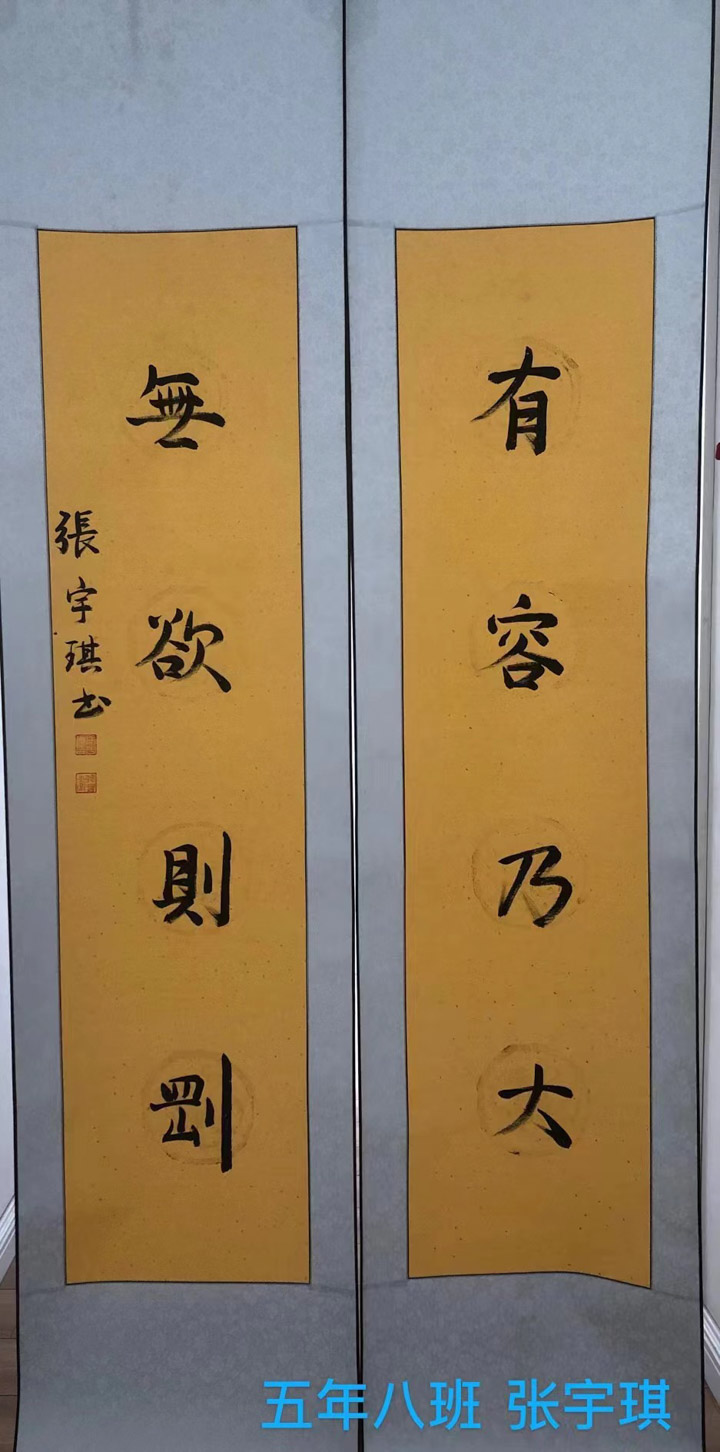 有容乃大
無欲則剛
張宇琪书
五年八班 张宇琪